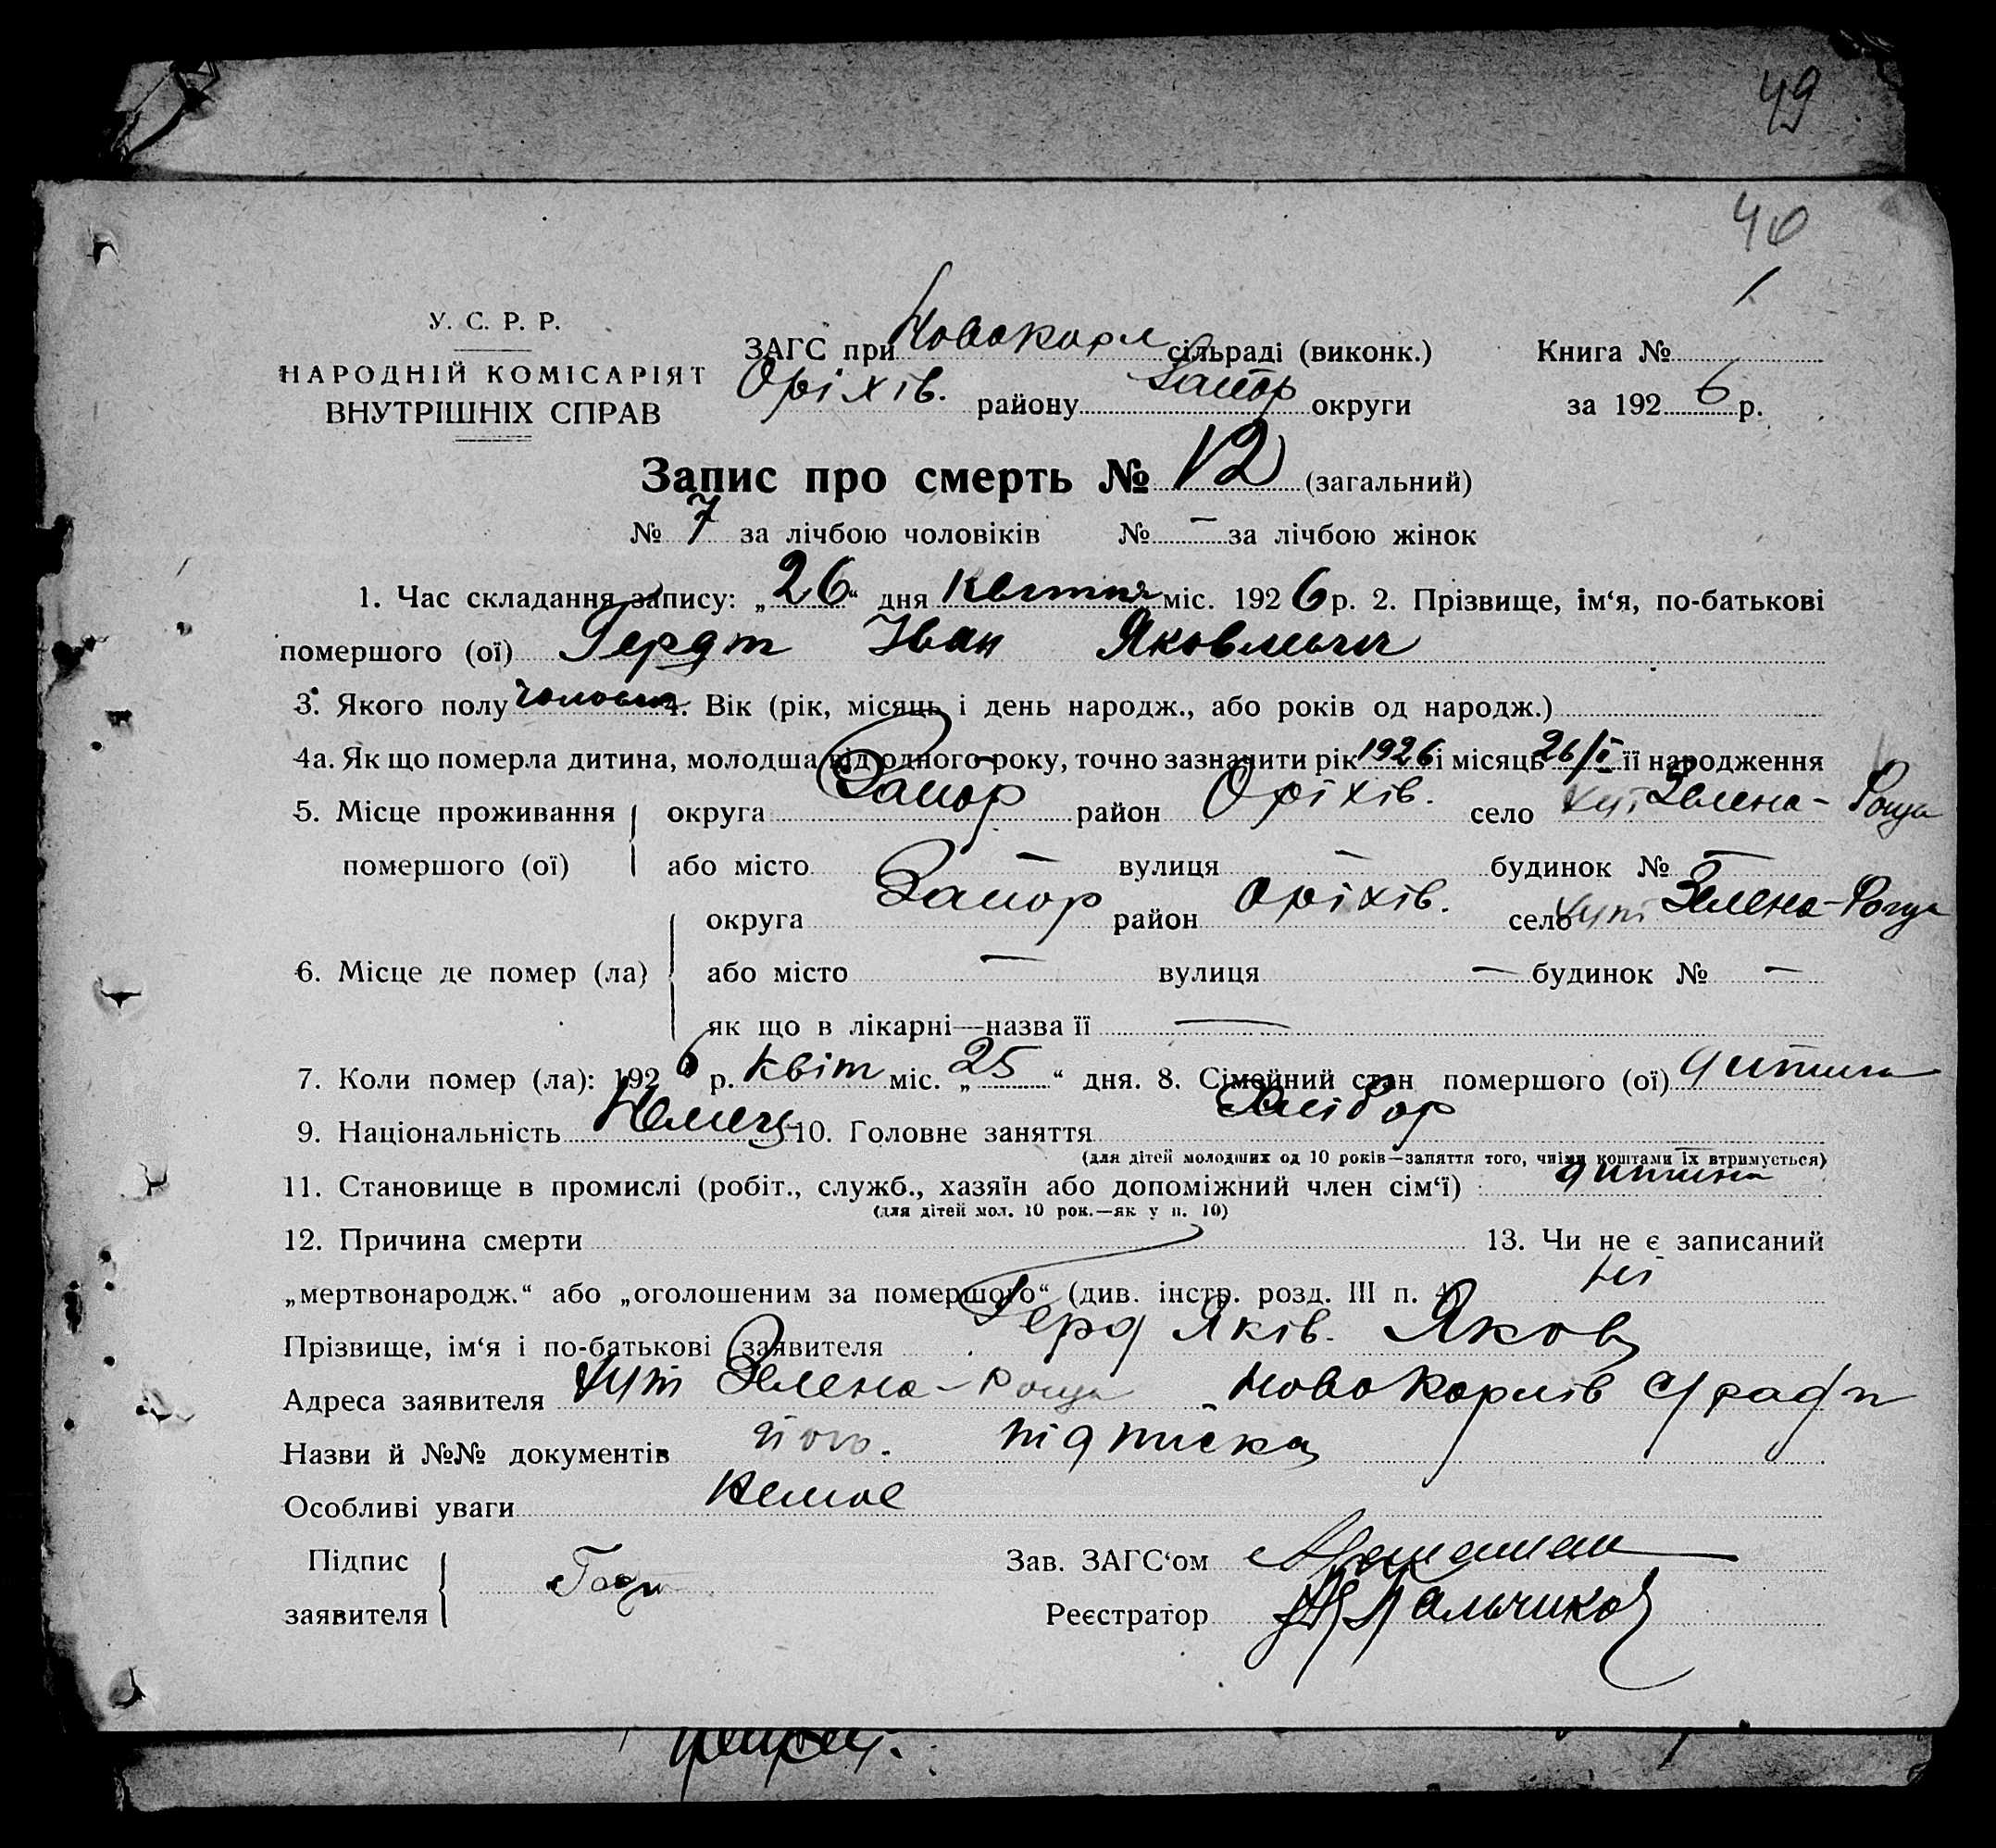 49
40
У. С. Р. Р.
НАРОДНІЙ КОМІСАРІЯТ
ВНУТРІШНІХ СПРАВ
ЗАГС при Новокарл сільраді (виконк.) Книга №
Оріхів. району Запор округи за 1926 р.
Запис про смерть № 12 (загальний)
№ 7 за лічбою чоловіків № – за лічбою жінок
1. Час складання запису: „26“ дня Квітня міс. 1926 р. 2. Прізвище, ім‘я, по-батькові
помершого (ої) Гердт Іван Яковлевич
3. Якого полу 4. Вік (рік, місяць і день народж., або років од народж.)
4а. Як що померла дитина, молодша від одного року, точно зазначити рік 1926 і місяць 26/I її народження
5. Місце проживання округа Запор район Оріхів. село хут Зелена-Роща
помершого (ої) або місто – вулиця – будинок № –
округа Запор район Оріхів. село хут Зелена-Роща
6. Місце де помер (ла) або місто – вулиця – будинок № –
як що в лікарні—назва її —
7. Коли помер (ла): 1926 р. Квіт міс. „25“ дня. 8. Сімейний стан помершого (ої) дитина
9. Національність Немец 10. Головне заняття Хлібор
(для дітей молодших од 10 років—заняття того, чиїми коштами їх втримується)
11. Становище в промислі (робіт., служб., хазяїн або допоміжний член сім‘ї) : дитина
(для дітей мол. 10 рок.—як у п. 10)
12. Причина смерти 13. Чи не є записаний
„мертвонародж.“ або „оголошеним за помершого“ (див. інстр. розд. III п. 4) ні
Прізвище, ім‘я і по-батькові заявителя Герд Яків. Яков
Адреса заявителя хут Зелена-Роща Новокарлів с/ради
Назви й №№ документів його. підписка
Особливі уваги Немае
Підпис Зав. ЗАГС‘ом
заявителя Реєстратор Пальчиков